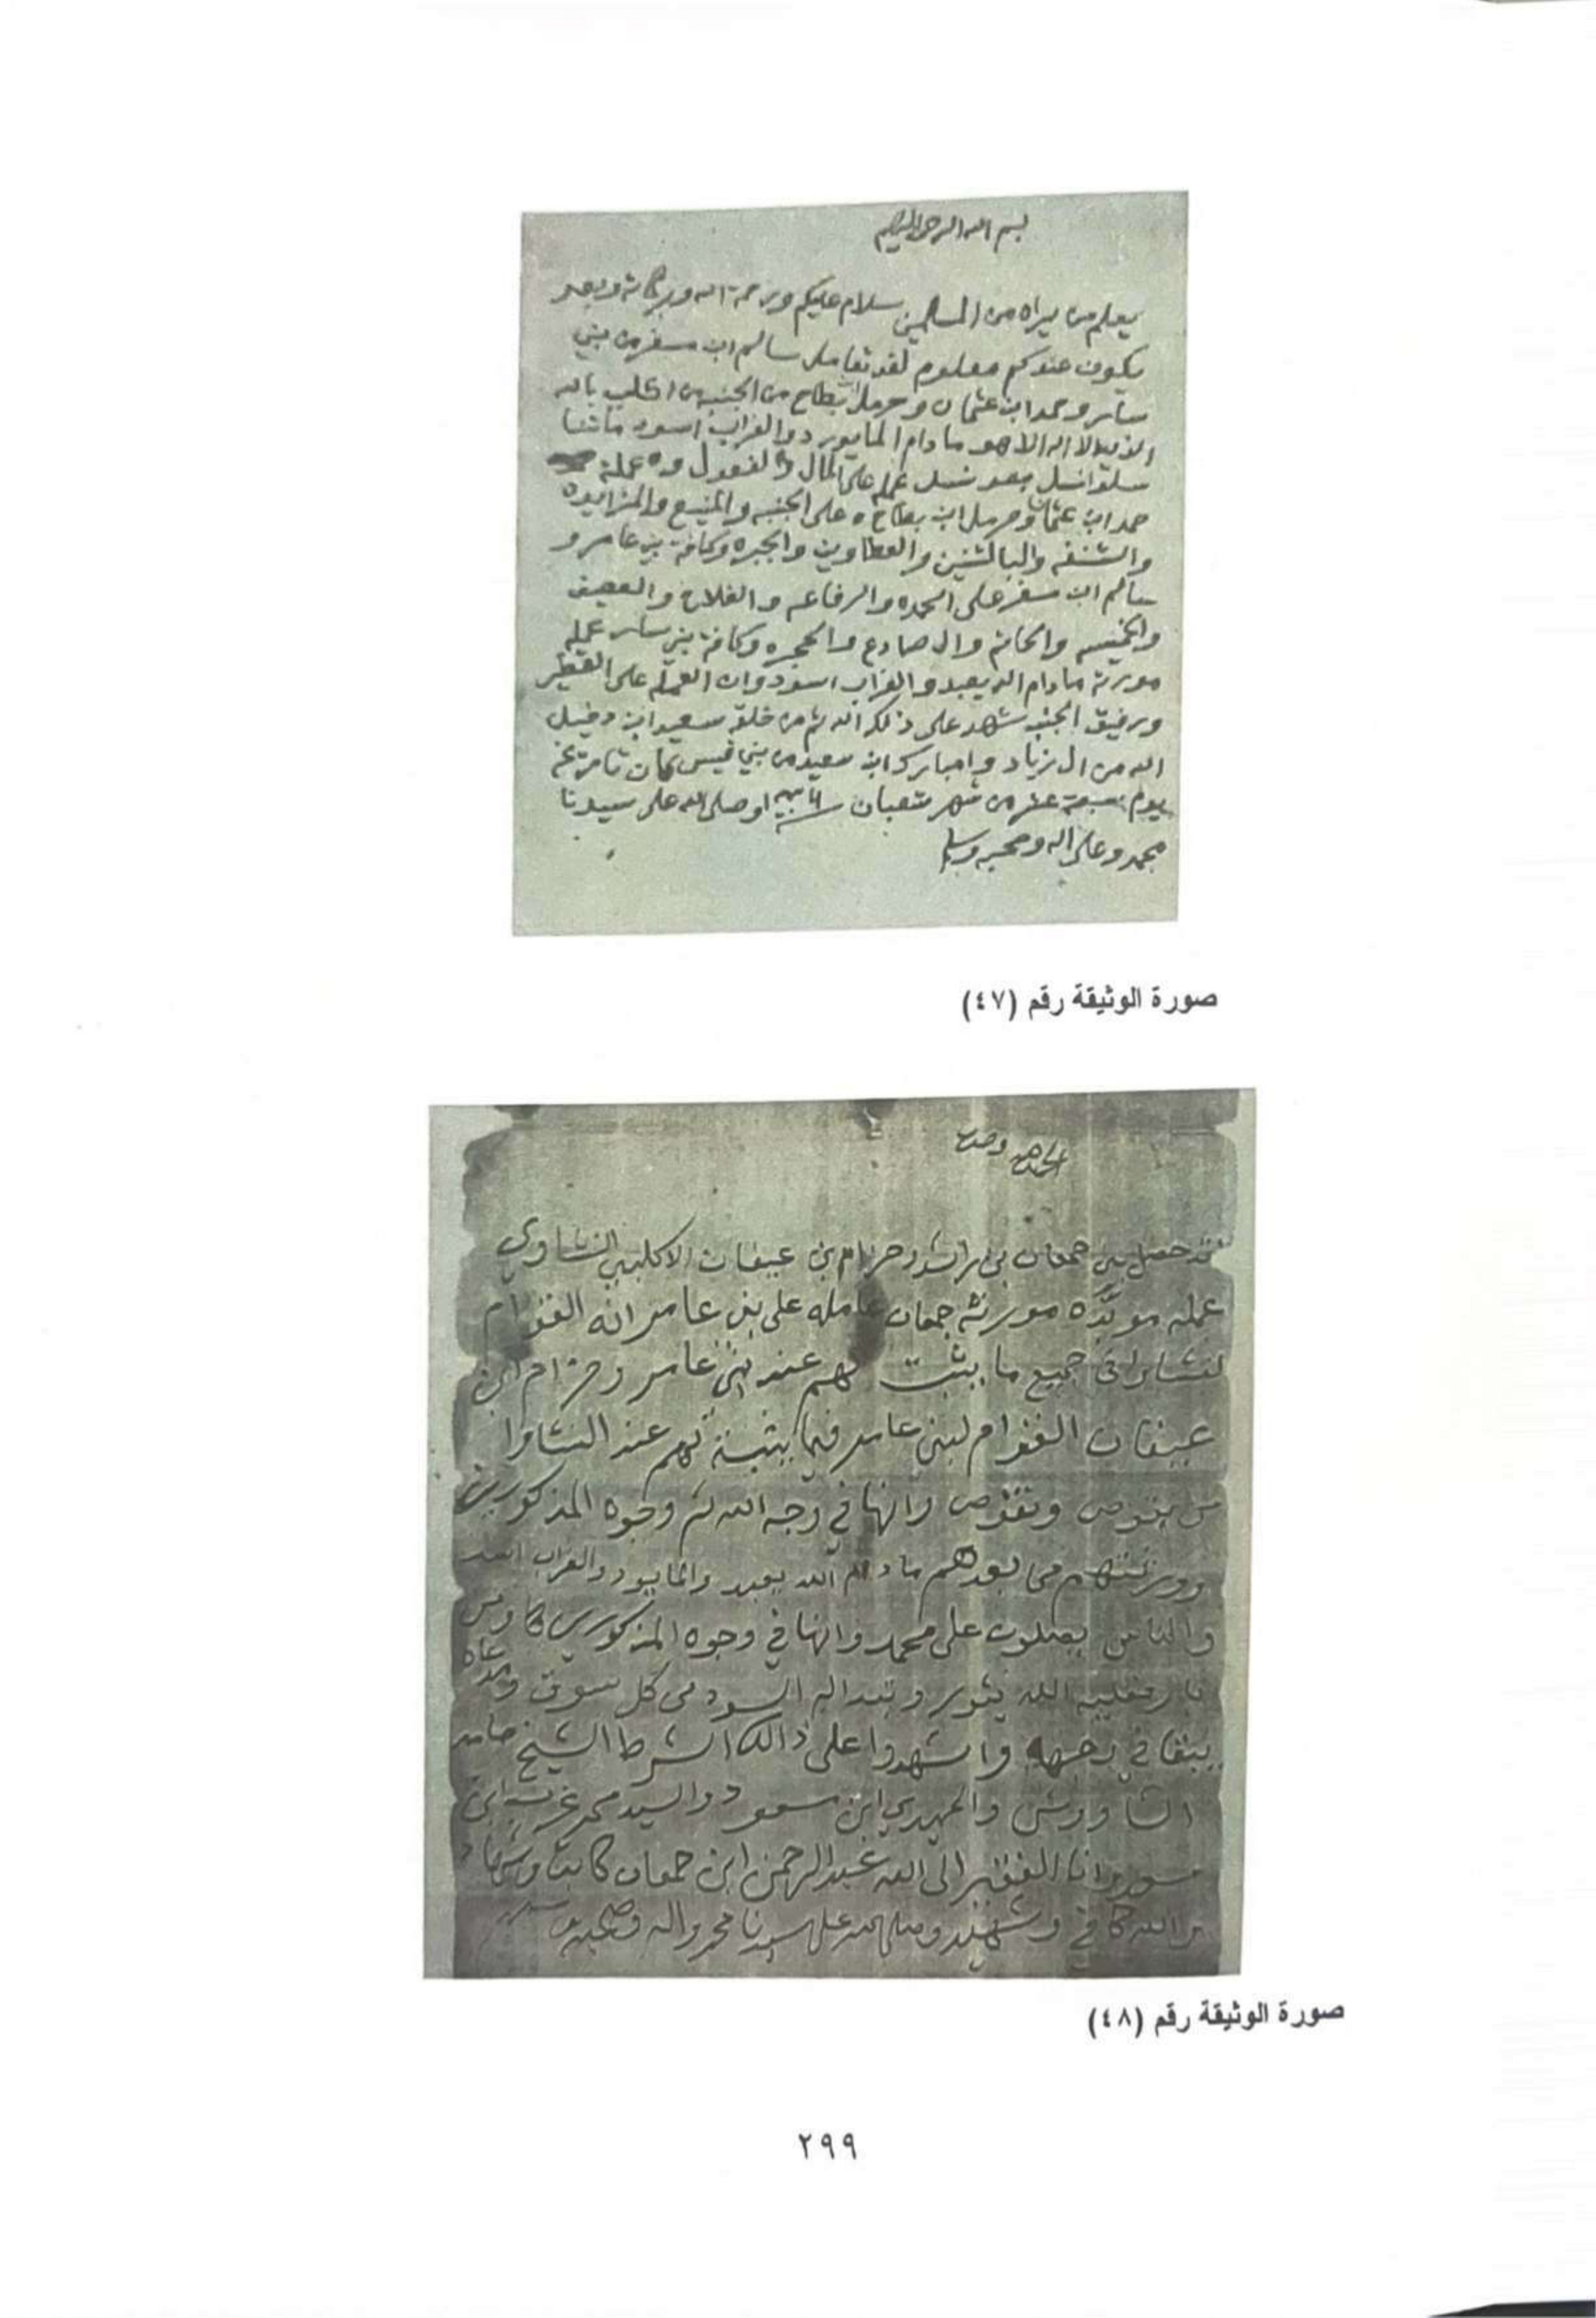 بسم الله الرحمن الرحيم
يعلم من يراه من المسلمين سلام عليكم ورحمة الله وبركاته وبعد
يكون عندكم معلوم لقد تعامل سالم ابن مسفر من بني
سار وحمد ابن عثمان وحرمل بطاح من الجنبه من اكلب بالله
الذي لا اله الا هو ما دام الما يورد والغراب اسود ما تنا
سلو انسل بعد نسل عمله على المال والفعول وه عملة
حمد ابن عثمان وحرمل ابن بطاح ه على الجنبه والمنيع والمزايده
والشنفه والبالشنين والعطاوين والجبره وكافة بني عامر و
سالم ابن مسفر على الحمده والرفاعه والفلاح والعصيف
والخميسه والحاتم وال صادع والحجره وكافة بني سار عمله
مورثه ما دام الله يعبد والغراب اسود وان العمله على القطير
ورفيق الجنب شهد على ذلك الله ثم من خلقه سعيد ابن دخيل
الله من ال زياد وامبارك ابن سعيد من بني قيس كان تاريخه
يوم سبعة عشر من شهر شعبان وصلى الله على سيدنا
محمد وعلى اله وصحبه وسلم
صورة الوثيقة رقم (٤٧)
الحمد لله وحده
قد حصل بين جمعان بن راشد وحزام بن عيفان الاكلبي النشاوي
عمله موبده مورثه جمعان عامله على بني عامر انه الغرام
لنشاوا في جميع ما يثبت لهم عند بني عامر وحزام ابن
عيفان الغرام لبني عامر فيما يثبت لهم عند النشاوا
وانها في وجه الله ثم وجوه المذكورين
وورثتهم من بعدهم ما دام الله يعبد والما يورد والغراب اسود
والناس يصلون على محمد وانها في وجوه المذكورين
الله السود من كل سوق
يبقا في وجهه واشهدوا على ذالك الشرط الشيخ حامد
الشاووش والمهدي ابن سعود والسيد محمد غريب ابن
وانا الفقير الى الله عبد الرحمن ابن جمعان كاتب وشاهد
والله كافي وشهيد وصلى الله على سيدنا محمد واله وصحبه
صورة الوثيقة رقم (٤٨)
٢٩٩